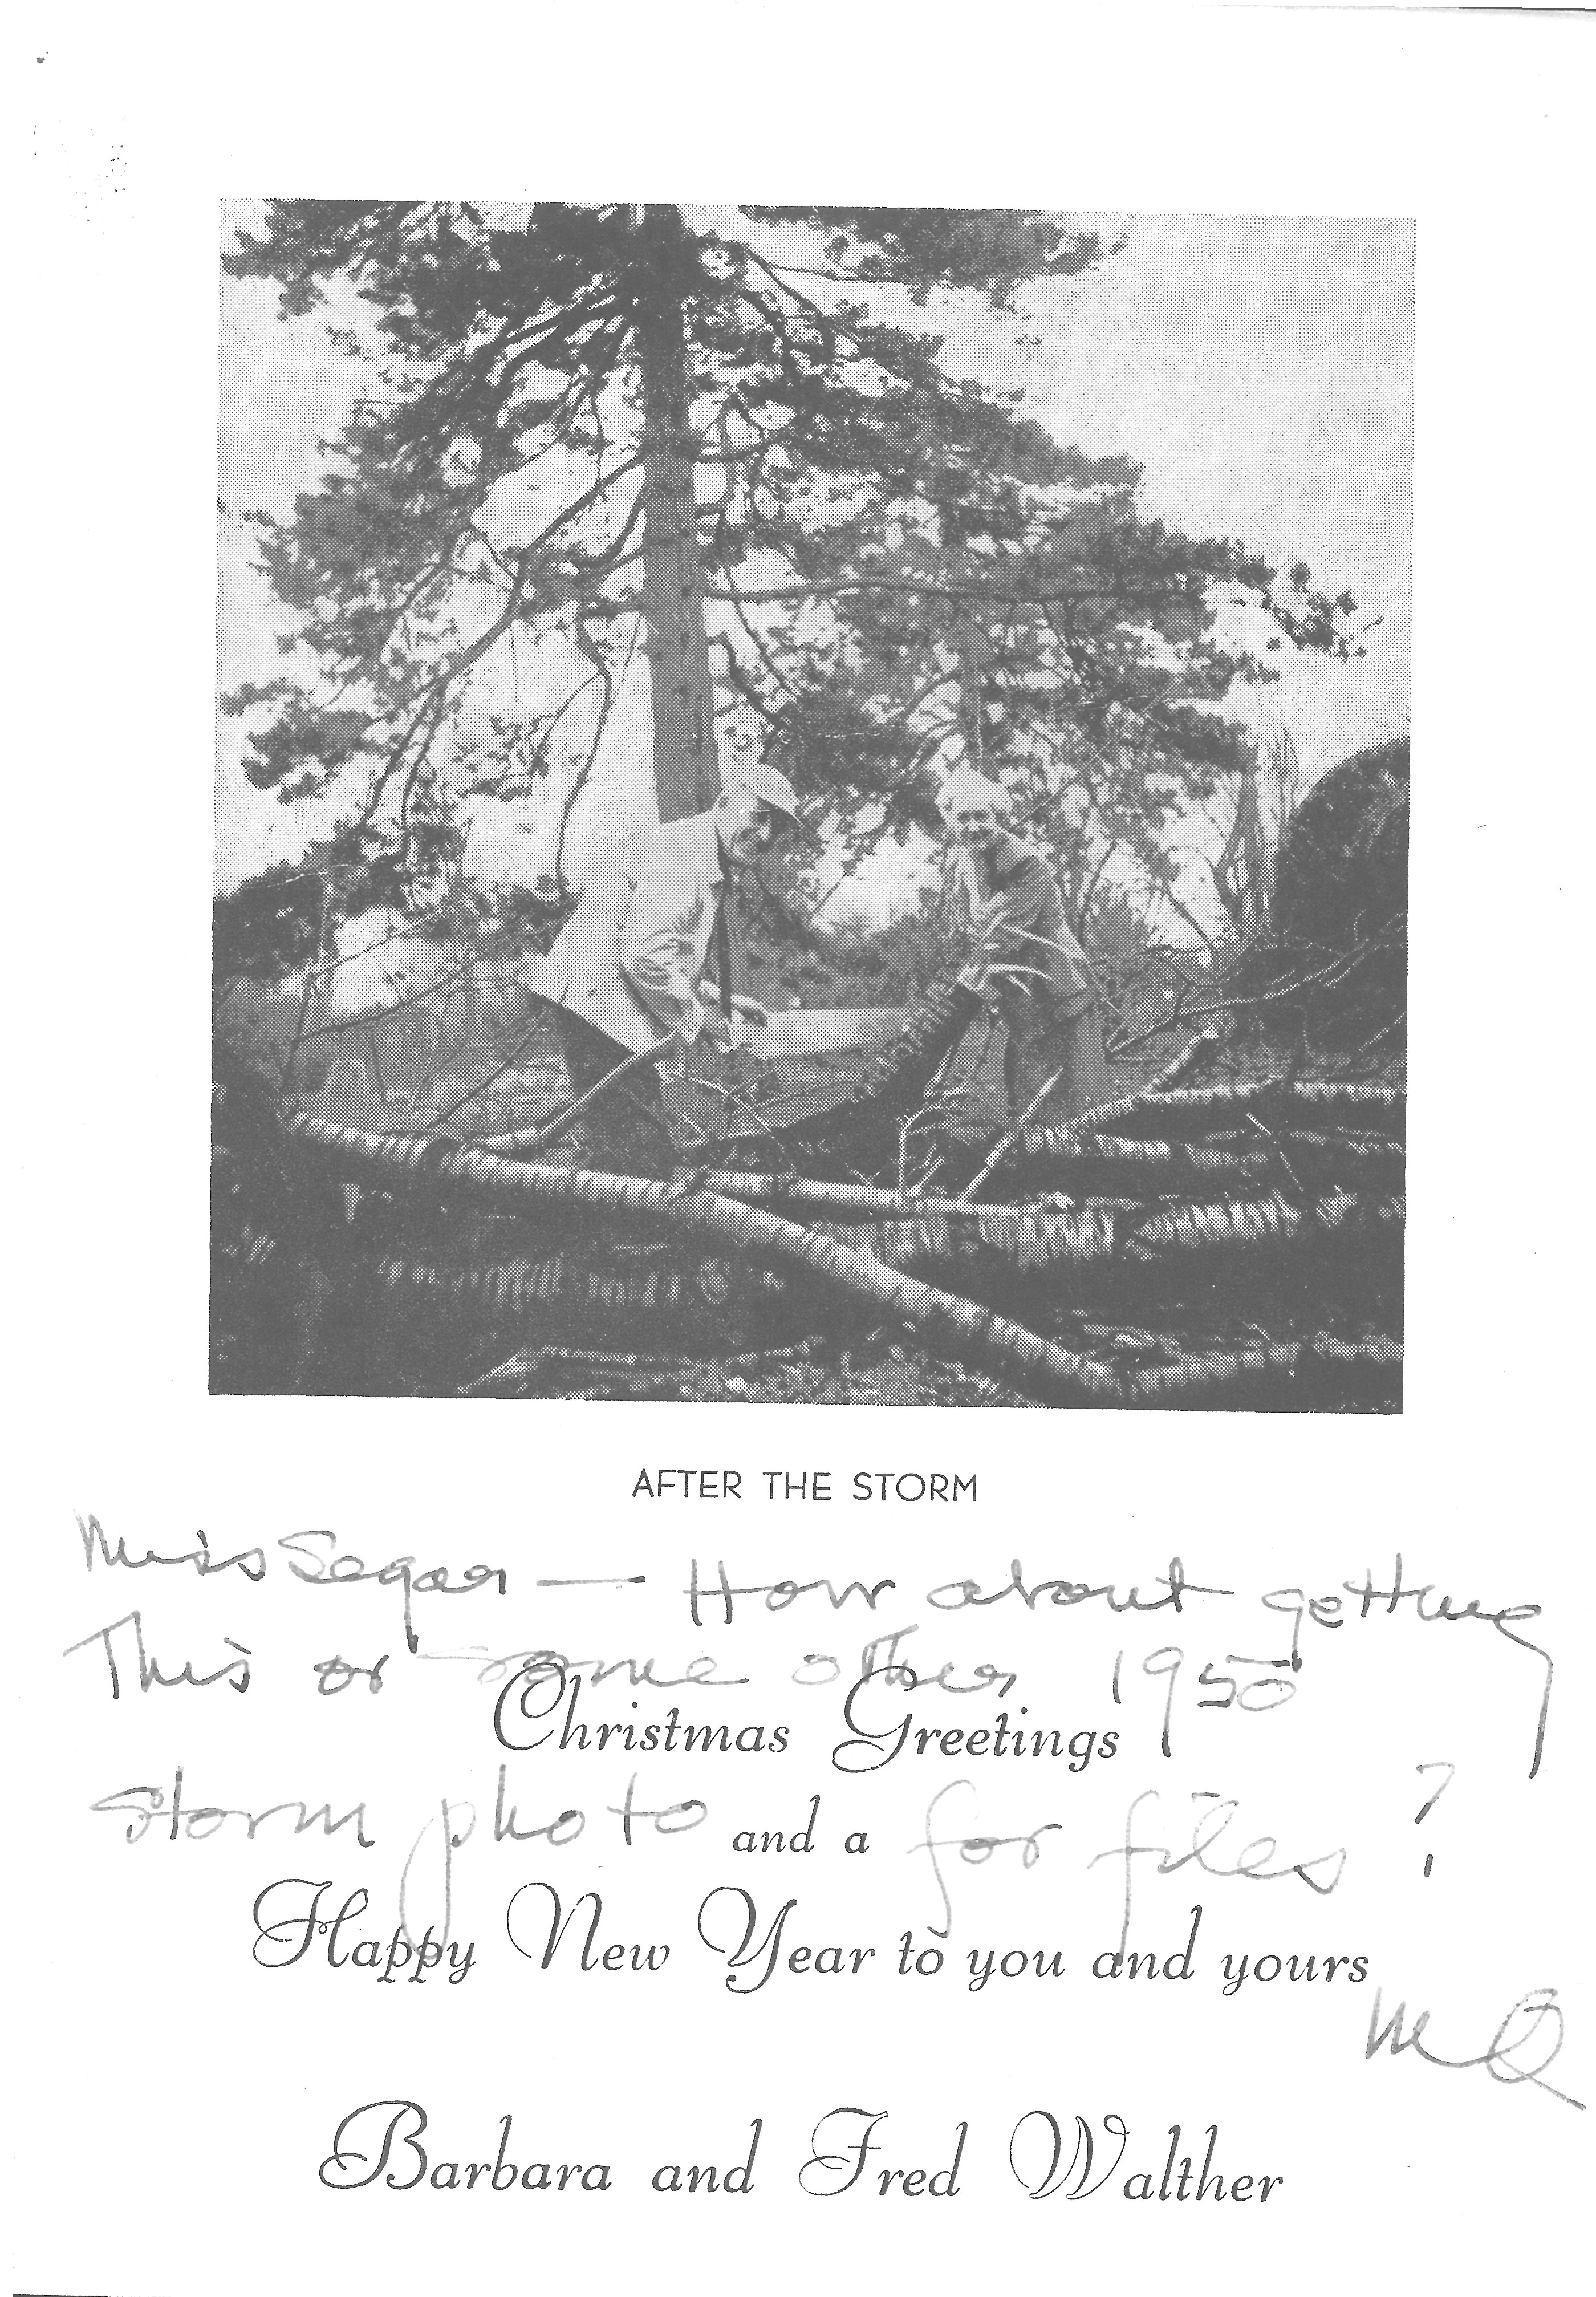 AFTER THE STORM
Miss Segar — How about getting
This or some other 1950
Christmas Greetings
storm photo for files?
and a
Happy New Year to you and yours
MQ
Barbara and Fred Walther